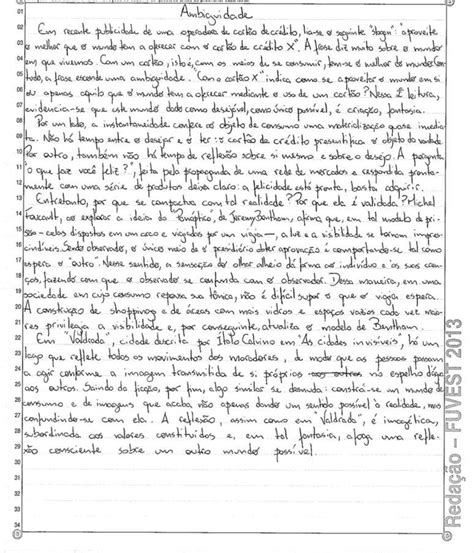 Ambiguidade
Em recente publicidade de uma operadora de cartão de crédito, lia-se o seguinte "slogan": "aproveite
o melhor que o mundo tem a oferecer com o cartão de crédito X". A frase diz muito sobre o mundo
em que vivemos. Com um cartão, isto é, com os meios de se consumir, tem-se o melhor do mundo. Con-
tudo, a frase esconde uma ambiguidade. "Com o cartão X" indica como se aproveitar o mundo em si
ou apenas aquilo que o mundo tem a oferecer mediante o uso de um cartão? Nessa 2ª leitura,
evidencia-se que este mundo dado como desejável, como único possível, é criação, fantasia.
Por um lado, a instantaneidade confere ao objeto de consumo uma materialização quase imedia-
ta. Não há tempo entre o desejar e o ter: o cartão de crédito presentifica o objeto da vontade.
Por outro, também não há tempo de reflexão sobre si mesmo e sobre o desejo. A pergunta
"o que faz você feliz?", feita pela propaganda de uma rede de mercados e respondida pronta-
mente com uma série de produtos deixa claro: a felicidade está pronta, basta adquirir.
Entretanto, por que se compactua com tal realidade? Por que ela é validada? Michel
Foucault, ao explorar a ideia do "Panóptico", de Jeremy Bentham, afirma que, em tal modelo de pri-
são - celas dispostas em um arco e vigiadas por um vigia -, a luz e a visibilidade se tornam impres-
cindíveis. Sendo observado, o único meio de o presidiário obter aprovação é comportando-se tal como
espera o "outro". Nesse sentido, a sensação do olhar alheio dá forma ao indivíduo e às suas cren-
ças, fazendo com que o observado se confunda com o observador. Dessa maneira, em uma
sociedade em cujo consumo repousa sua tônica, não é difícil supor o que o vigia espera.
A construção de shoppings e de áreas com mais vidros e espaços vazios cada vez mai-
ores privilegia a visibilidade e, por conseguinte, atualiza o modelo de Bentham.
Em "Valdrada", cidade descrita por Ítalo Calvino em "As cidades invisíveis", há um
lago que reflete todos os movimentos dos moradores, de modo que as pessoas passam
a agir conforme a imagem transmitida de si próprios no espelho d'água
aos outros. Saindo da ficção, por fim, algo similar se desnuda: constrói-se um mundo de
consumo e de imagens que acaba não apenas dando um sentido possível à realidade, mas
confundindo-se com ela. A reflexão, assim como em "Valdrada", é imagética,
subordinada aos valores constituídos e, em tal fantasia, afoga uma refle-
xão consciente sobre um outro mundo possível.
Redação – FUVEST 2013